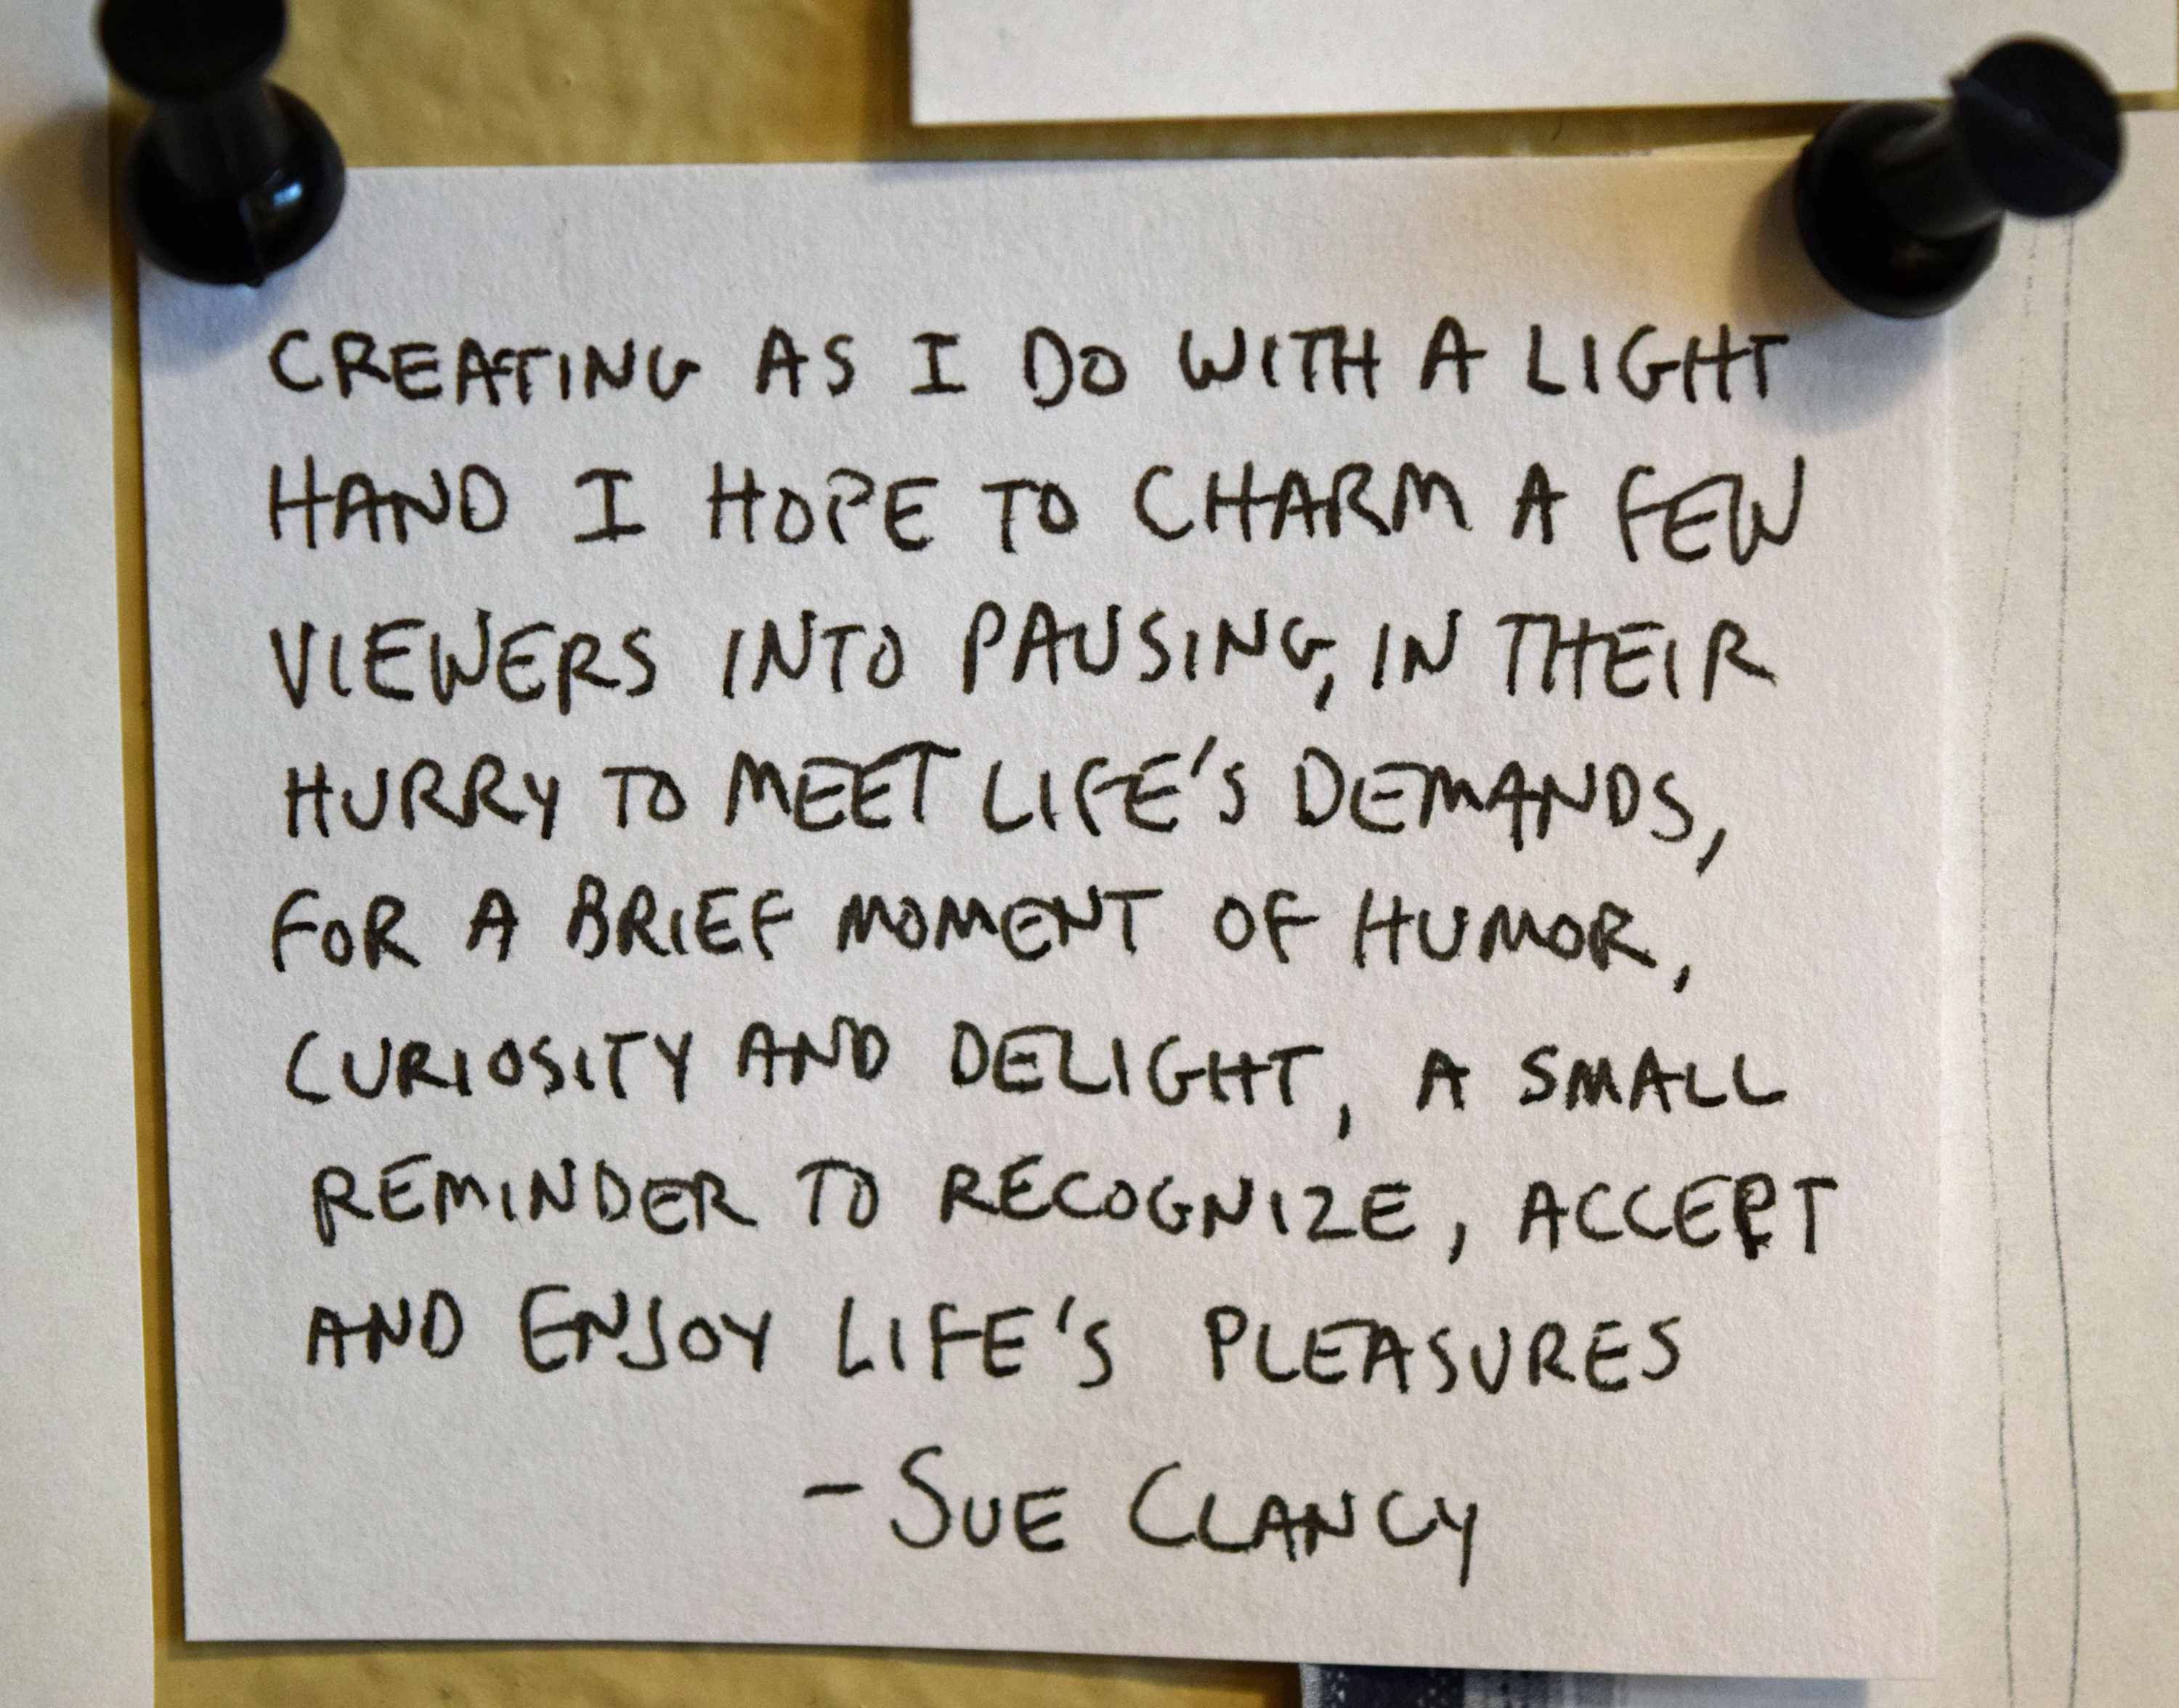 CREATING AS I DO WITH A LIGHT
HAND I HOPE TO CHARM A FEW
VIEWERS INTO PAUSING, IN THEIR
HURRY TO MEET LIFE'S DEMANDS,
FOR A BRIEF MOMENT OF HUMOR,
CURIOSITY AND DELIGHT, A SMALL
REMINDER TO RECOGNIZE, ACCEPT
AND ENJOY LIFE'S PLEASURES
- SUE CLANCY